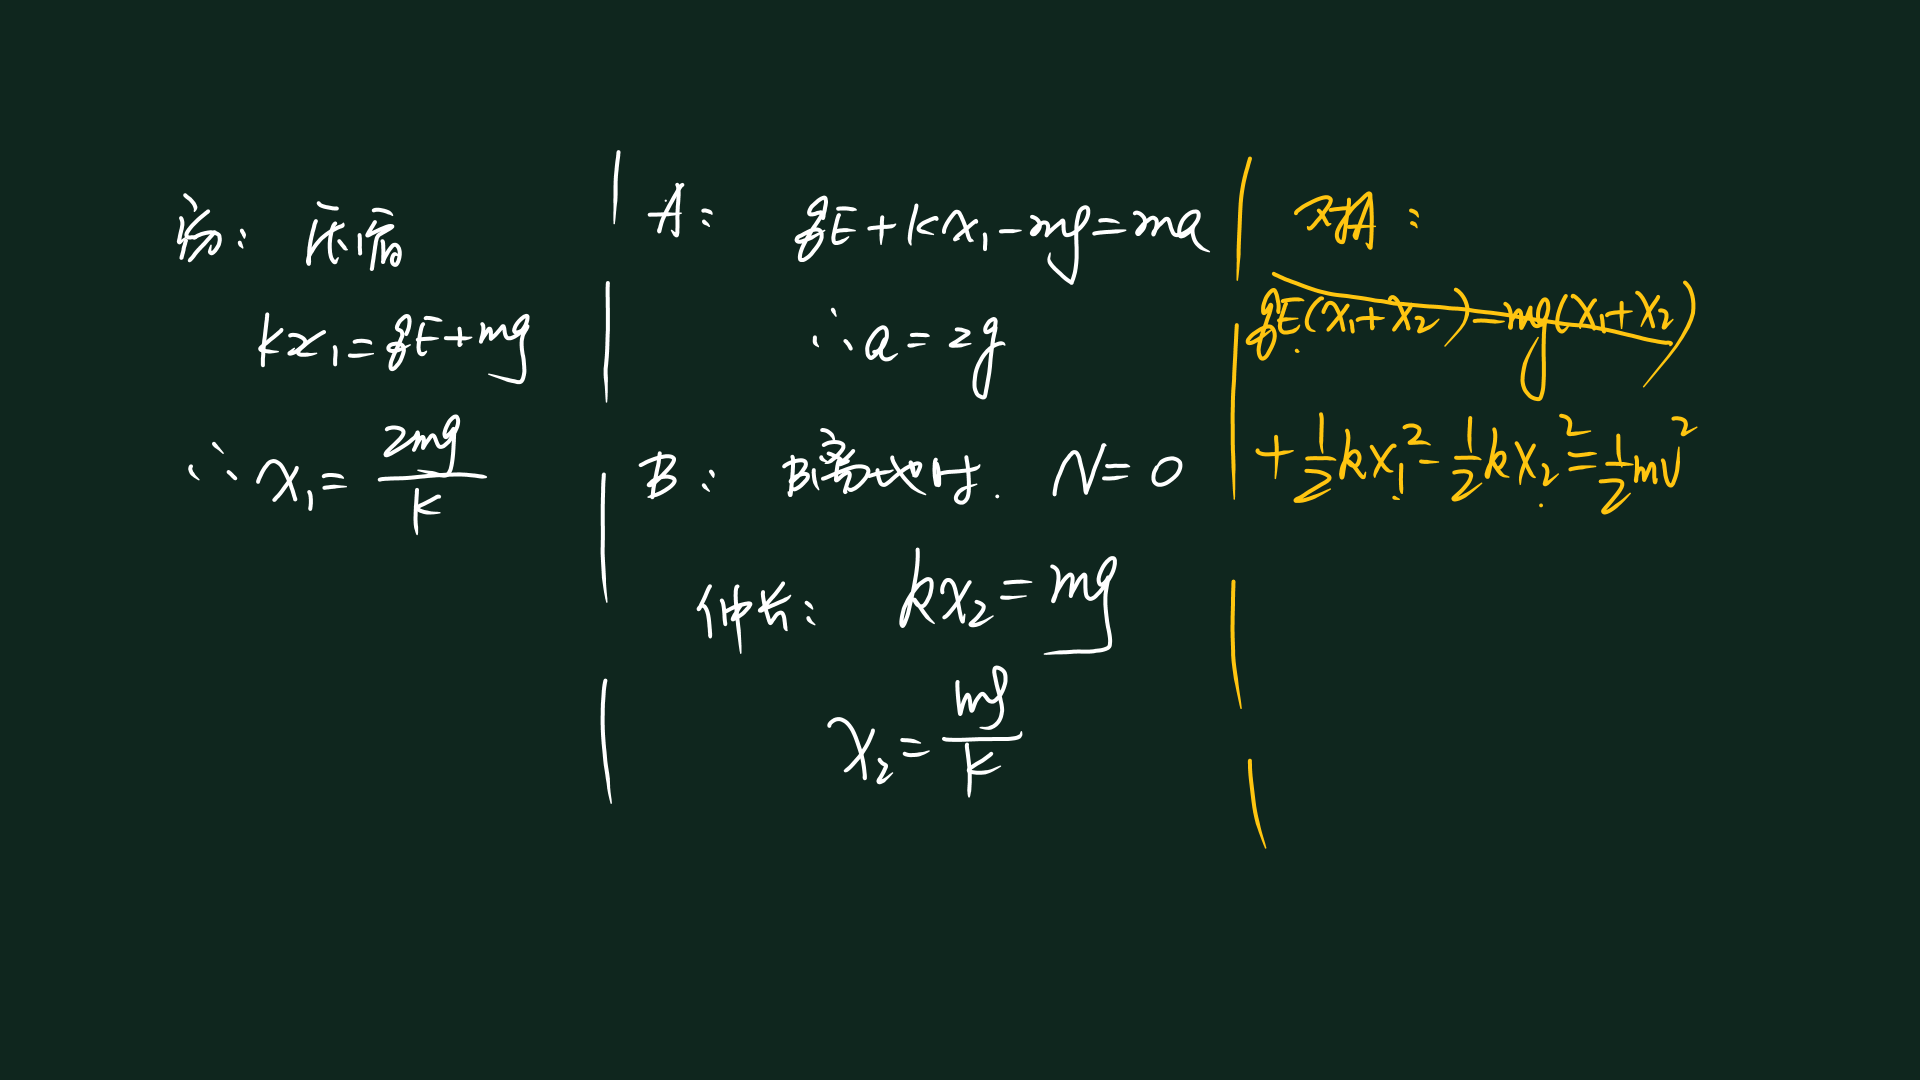 初：压缩
kx₁=qE+mg
∴ x₁=2mg/k
A： qE+kx₁-mg=ma
∴ a=2g
B： B离地时. N=0
伸长： kx₂=mg
x₂=mg/k
对A：
qE(x₁+x₂)-mg(x₁+x₂)
+½kx₁²-½kx₂²=½mv²